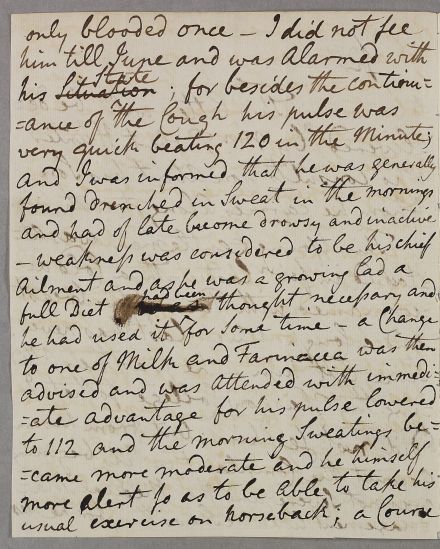 only blooded once – I did not see
him till June and was Alarmed with
his Situation State; for besides the continu=
=ance of the Cough his pulse was
very quick beating 120 in the Minute;
and I was informed that he was generally
found drenched in Sweat in the mornings
and had of late become drowsy and inactive
– weakness was considered to be his chief
Ailment and as he was a growing lad a
full Diet had been thought necessary and
he had used it for some time – a Change
to one of Milk and Farinacea was then
advised and was attended with immedi=
=ate advantage for his pulse lowered
to 112 and the morning Sweatings be=
=came more moderate and he himself
more alert so as to be Able to take his
usual exercise on horseback; a Course